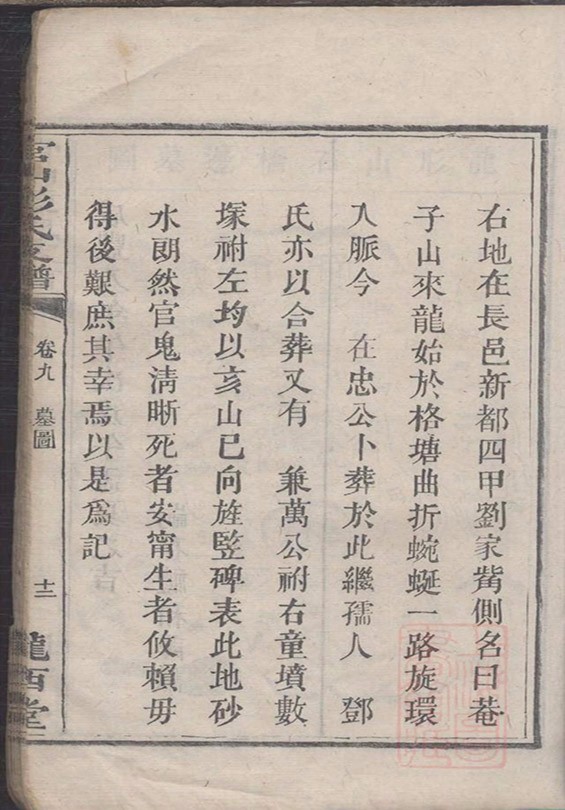 右地在長邑新都四甲劉家觜側名曰菴
子山來龍始於格塘曲折蜿蜒一路旋環
入脈今 在忠公卜葬於此繼孺人 鄧
氏亦以合葬又有 兼萬公祔右童墳數
塚祔左均以亥山巳向旌豎碑表此地砂
水朗然官鬼淸晰死者安甯生者攸賴毋
得後艱庶其幸焉以是爲記
山彭氏支譜
卷九 墓圖
十二
隴西堂